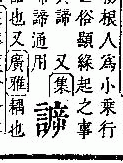 根人為小乘行
俗顯緣起之事
諦又集
諦
諦通用
也又廣雅
也